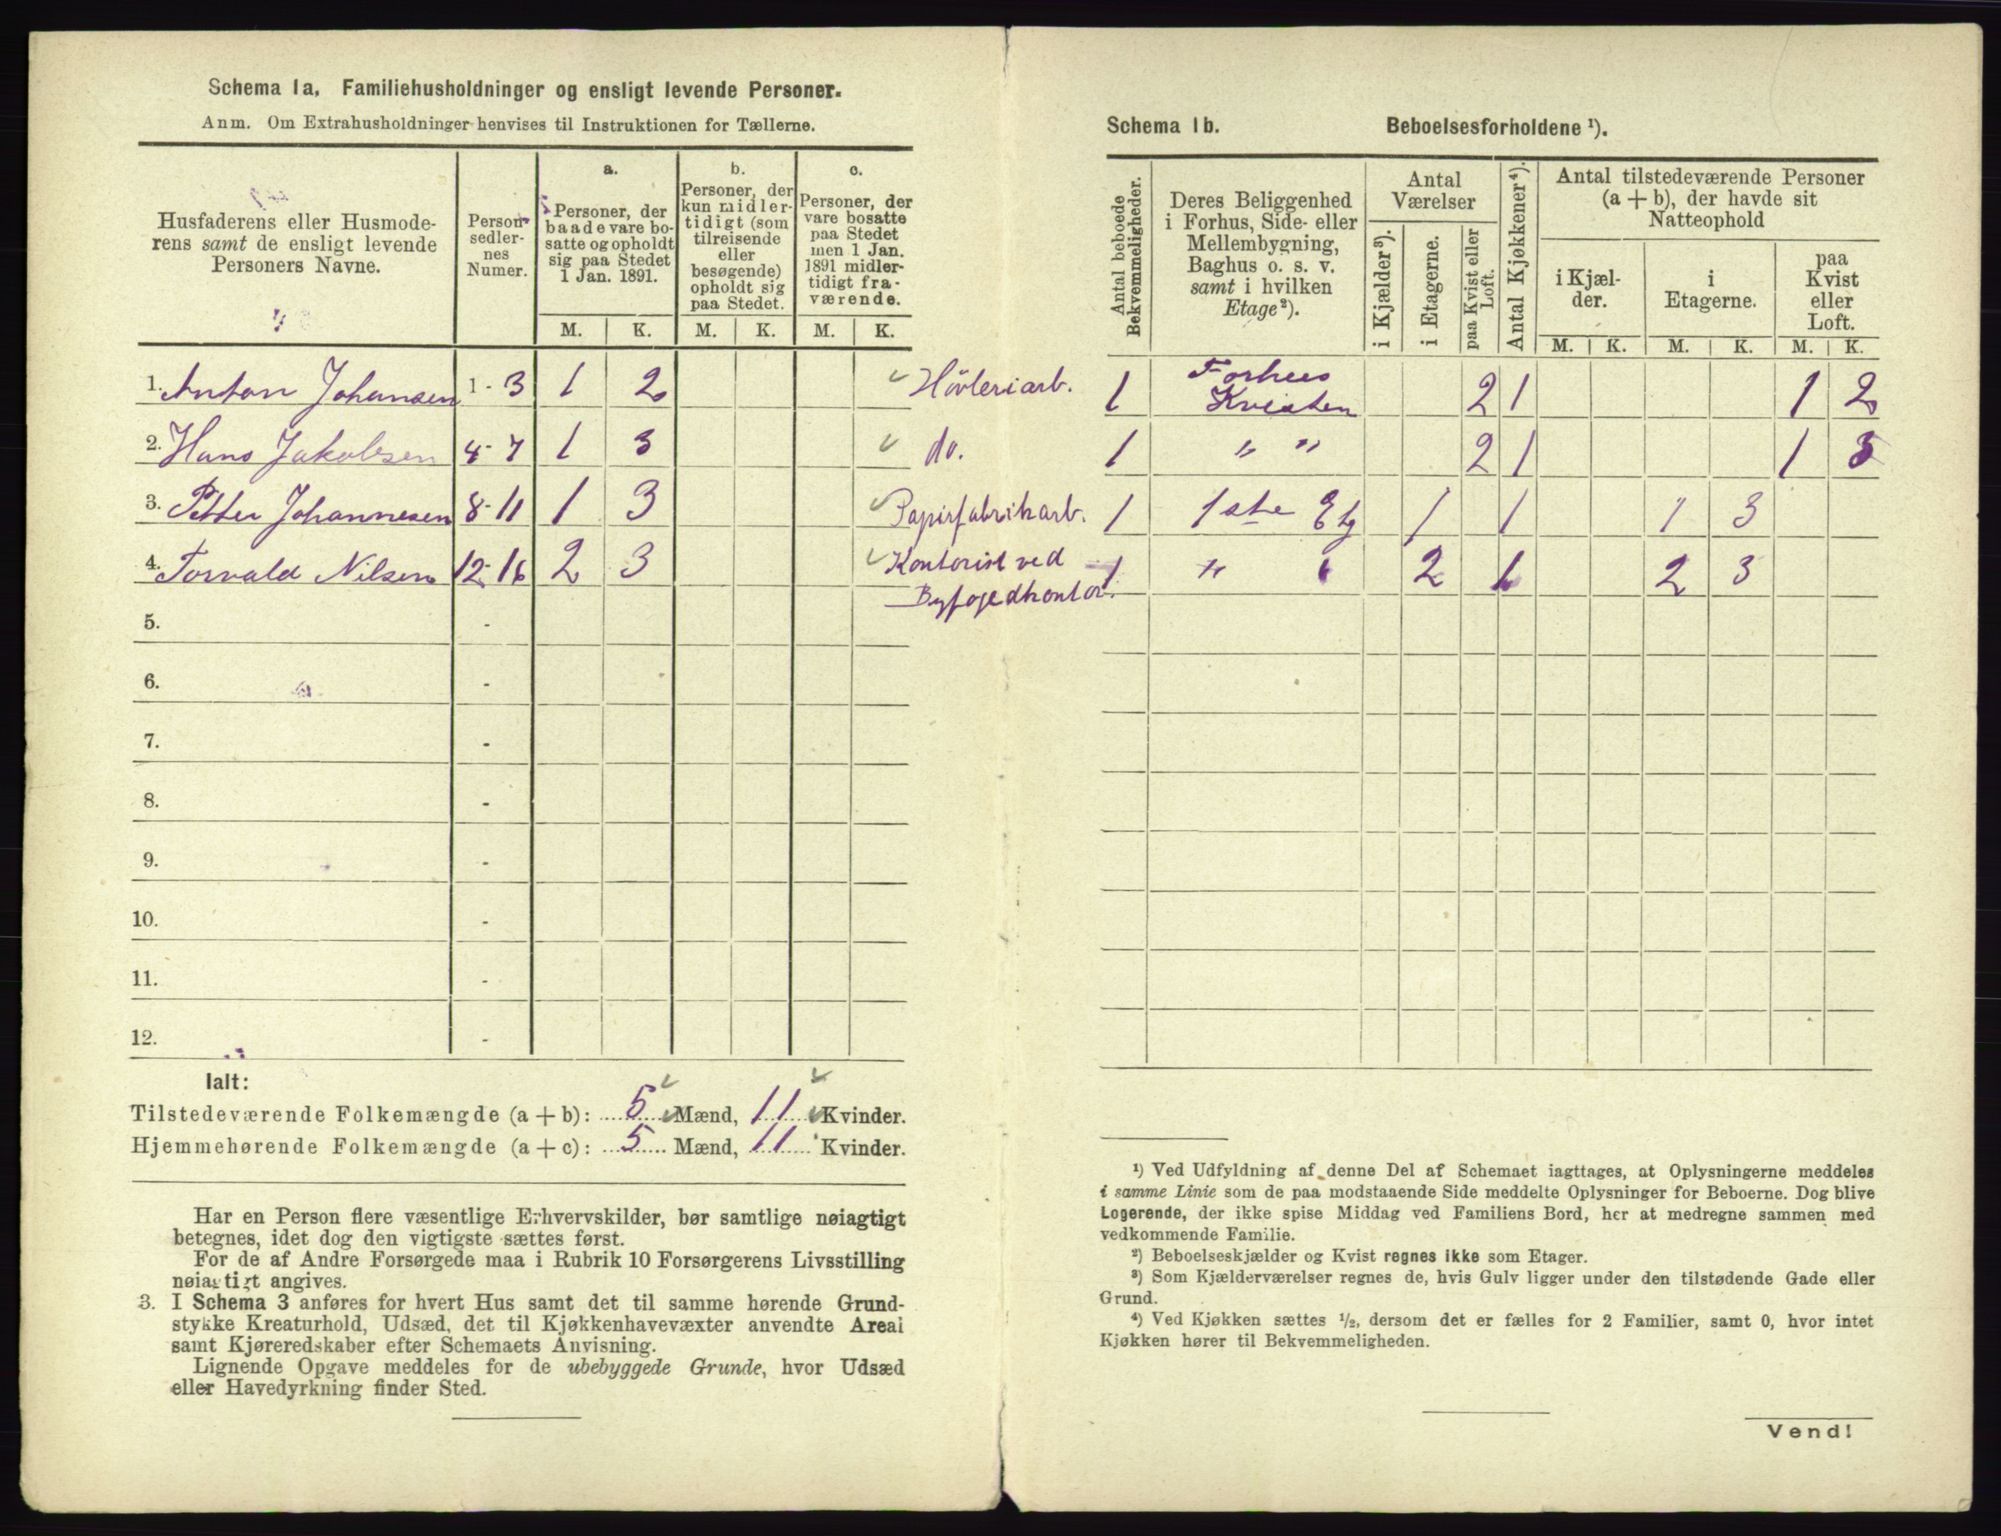 Schema 1a. Familiehusholdninger og ensligt levende Personer.
Anm. Om Extrahusholdninger henvises til Instruktionen for Tællerne.
Husfaderens eller Husmode-
rens samt de ensligt levende
Personers Navne.
Person-
sedler-
nes
Numer.
a.
Personer, der
baade vare bo-
satte og opholdt
sig paa Stedet
1 Jan. 1891.
b.
Personer, der
kun midler-
tidigt (som
tilreisende
eller
besøgende)
opholdt sig
paa Stedet.
c.
Personer, der
vare bosatte
paa Stedet
men 1 Jan.
1891 midler-
tidigt fra-
værende.
M. K. M. K. M. K.
1. Anton Johansen 1 - 3 1 2 Hövleriarb.
2. Hans Jakobsen 4 - 7 1 3 do.
3. Petter Johannesen 8 - 11 1 3 Papirfabrikarb.
4. Torvald Nilsen 12 - 16 2 3 Kontorist ved
Byfogedkontor.
5. -
6. -
7. -
8. -
9. -
10. -
11. -
12. -
Ialt:
Tilstedeværende Folkemængde (a + b): 5 Mænd, 11 Kvinder.
Hjemmehørende Folkemængde (a + c): 5 Mænd, 11 Kvinder.
Har en Person flere væsentlige Erhvervskilder, bør samtlige nøiagtigt
betegnes, idet dog den vigtigste sættes først.
For de af Andre Forsørgede maa i Rubrik 10 Forsørgerens Livsstilling
nøiagtigt angives.
3. I Schema 3 anføres for hvert Hus samt det til samme hørende Grund-
stykke Kreaturhold, Udsæd, det til Kjøkkenhavevæxter anvendte Areal
samt Kjøreredskaber efter Schemaets Anvisning.
Lignende Opgave meddeles for de ubebyggede Grunde, hvor Udsæd
eller Havedyrkning finder Sted.
Schema 1b. Beboelsesforholdene ¹).
Antal beboede
Bekvemmeligheder.
Deres Beliggenhed
i Forhus, Side- eller
Mellembygning,
Baghus o. s. v.
samt i hvilken
Etage²).
Antal
Værelser
i Kjælder³).
i Etagerne.
paa Kvist eller
Loft.
Antal Kjøkkener⁴).
Antal tilstedeværende Personer
(a + b), der havde sit
Natteophold
i Kjæl-
der.
i
Etagerne.
paa
Kvist
eller
Loft.
M. K. M. K. M. K.
1 Forhus
Kvisten 2 1 1 2
1 " " 2 1 1 3
1 1ste Etg 1 1 1 3
1 " " 2 1 2 3
¹) Ved Udfyldning af denne Del af Schemaet iagttages, at Oplysningerne meddeles
i samme Linie som de paa modstaaende Side meddelte Oplysninger for Beboerne. Dog blive
Logerende, der ikke spise Middag ved Familiens Bord, her at medregne sammen med
vedkommende Familie.
²) Beboelseskjælder og Kvist regnes ikke som Etager.
³) Som Kjælderværelser regnes de, hvis Gulv ligger under den tilstødende Gade eller
Grund.
⁴) Ved Kjøkken sættes ½, dersom det er fælles for 2 Familier, samt 0, hvor intet
Kjøkken hører til Bekvemmeligheden.
Vend!